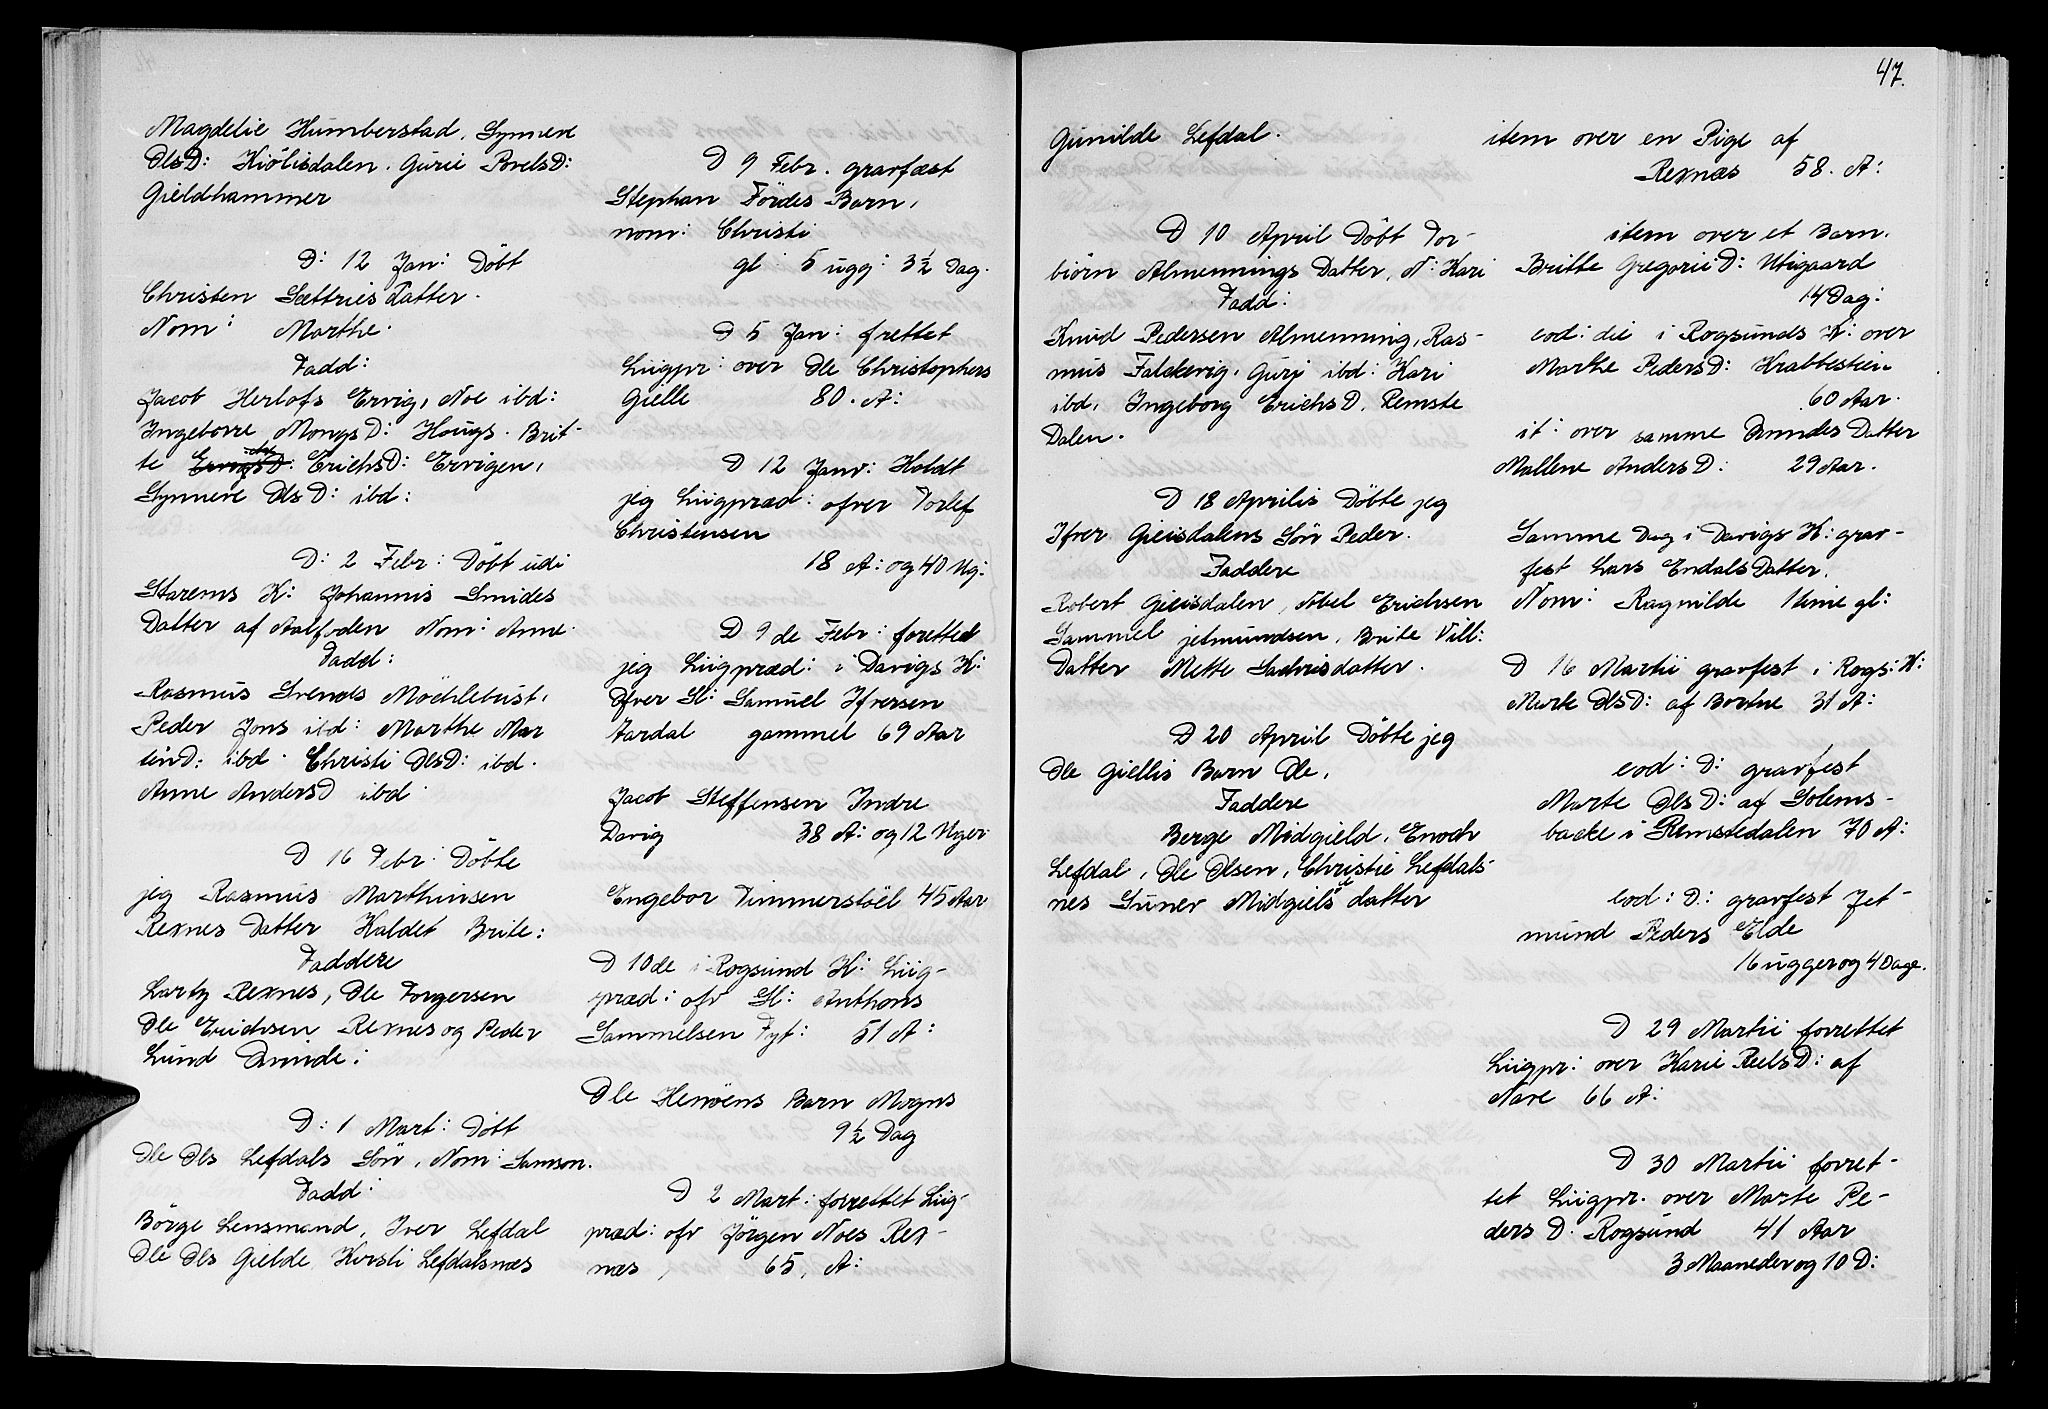 Magdelie Humberstad, Synneve
OlsD: Kiölisdalen. Gurie PovelsD:
Gieldhammer
D: 12 Jan: Döbt
Christen Sættries Datter.
Nom: Marthe.
Fadd:
Jacob Herlofs Ervig, Noe ibd:
Ingeborre MongsD: Hougs. Brit-
te ErichsD: Ervigen,
Synneve OlsD: ibd:
D: 2 Febr: Döbt udi
Starems K: Johannis Smides
Datter af Aalfoden Nom: Anne.
Fadd:
Rasmus Svends Möchlebust,
Peder Jons ibd: Marthe Mar
tinD: ibd. Christi OlsD: ibd.
Anne AndersD ibd.
D 16 Febr: Döbte
jeg Rasmus Marthinsen
Rexnes Datter Kaldet Brite:
Faddere
Lartz Rexnes, Ole Torgersen
Ole Erichsen Rexnes og Peder
Lund Qvinde:
D: 1 Mart: Döbt
Ole Ols Lefdals Sön, Nom: Samson.
Fadd:
Börge Lensmand, Iver Lefdal
Ole Ols Gielde, Kirsti Lefdalsnæs
D 9 Febr. gravfæst
Stephan Fördes Barn,
nom: Christi
gl: 5 ugg: 3½ Dag.
D 5 Jan: frettet
Liigpr: over Ole Christophers
Gielle 80. A:
D 12 Janv: Holdt
jeg Liigpræd: ofver Torlef
Christensen
18 A: og 40 Ug:
D 9de Febr: foretted
jeg Liigpræd: i Davigs K:
Ofver Sl: Samuel Ifversen
Aardal gammel 69 Aar
Jacob Steffensen Indre
Davig 38 A: og 12 Uger
Engebor Timmerstöel 45 Aar
D 10de i Rogsund K: Liig-
præd: ofv Sl: Anthons
Sammelsen Tyt: 51 A:
Ole Henöens Barn Mogns
9½ Dag
D 2 Mart: forrettet Liig-
præd: ofv Jörgen Noes Rex-
næs, 65, A:
47.
Gunilde Lefdal.
D 10 April Döbt Tor-
biörn Almennings Datter, N: Kari
Fadd:
Knud Pedersen Almenning, Ras-
mus Falckevig, Gurj ibd: Kari
ibd, Ingeborg ErichsD, Remste
Dalen.
D 18 Aprilis Döbte jeg
Ifver Gieisdalens Sön Peder.
Faddere
Robert Gieisdalen, Abel Erichsen
Sammel jetmundsen, Brite Vill:
Datter Mette Sachrisdatter.
D 20 April Döbte jeg
Ole Giellis Barn Ole,
Faddere
Berge Midgield, Enoch
Lefdal, Ole Olsen, Christie Lefdals-
nes Suner Midgiels datter
item over en Pige af
Rexnæs 58. A:
item over et Barn.
Britte GregoriiD: Utigaard
14 Dag:
eod: die i Rogsunds K: over
Marthe PedersD: Krabbestien
60 Aar.
it: over samme Qvindes Datter
Mallene AndersD: 29 Aar.
Samme Dag i Davigs K: grav-
fest Lars Endals Datter.
Nom: Ragnilde 1 time gl:
D 16 Martii gravfest i Rogs: K:
Marte OlsD: af Bortne 31 A:
eod: D: gravfest
Marte OlsD: af Solems-
backe i Remstedalen 70 A:
eod: D: gravfest Jet-
mund Peders Elde
16 ugger og 4 Dage.
D 29 Martii forrettet
Liigpr: over Karii PeelsD: af
Nave 66 A:
D 30 Martii forret-
tet Liigpr. over Marte Pe-
ders D: Rogsund 41 Aar
3 Maaneder og 10 D: